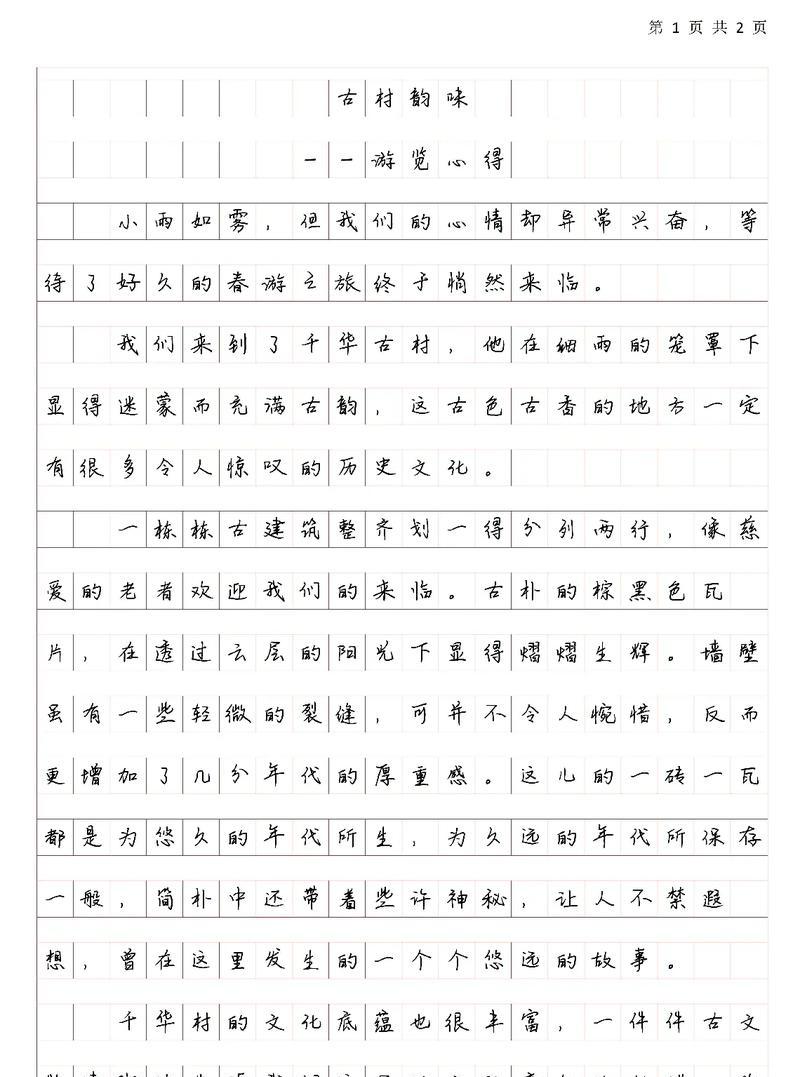 第 1 页 共 2 页
古村韵味
一一游览心得
小雨如雾，但我们的心情却异常兴奋，等
待了好久的春游之旅终于悄然来临。
我们来到了千华古村，他在细雨的笼罩下
显得迷蒙而充满古韵，这古色古香的地方一定
有很多令人惊叹的历史文化。
一栋栋古建筑整齐划一得分列两行，像慈
爱的老者欢迎我们的来临。古朴的棕黑色瓦
片，在透过云层的阳光下显得熠熠生辉。墙壁
虽有一些轻微的裂缝，可并不令人惋惜，反而
更增加了几分年代的厚重感。这儿的一砖一瓦
都是为悠久的年代所生，为久远的年代所保存
一般，简朴中还带着些许神秘，让人不禁遐
想，曾在这里发生的一个个悠远的故事。
千华村的文化底蕴也很丰富，一件件古文